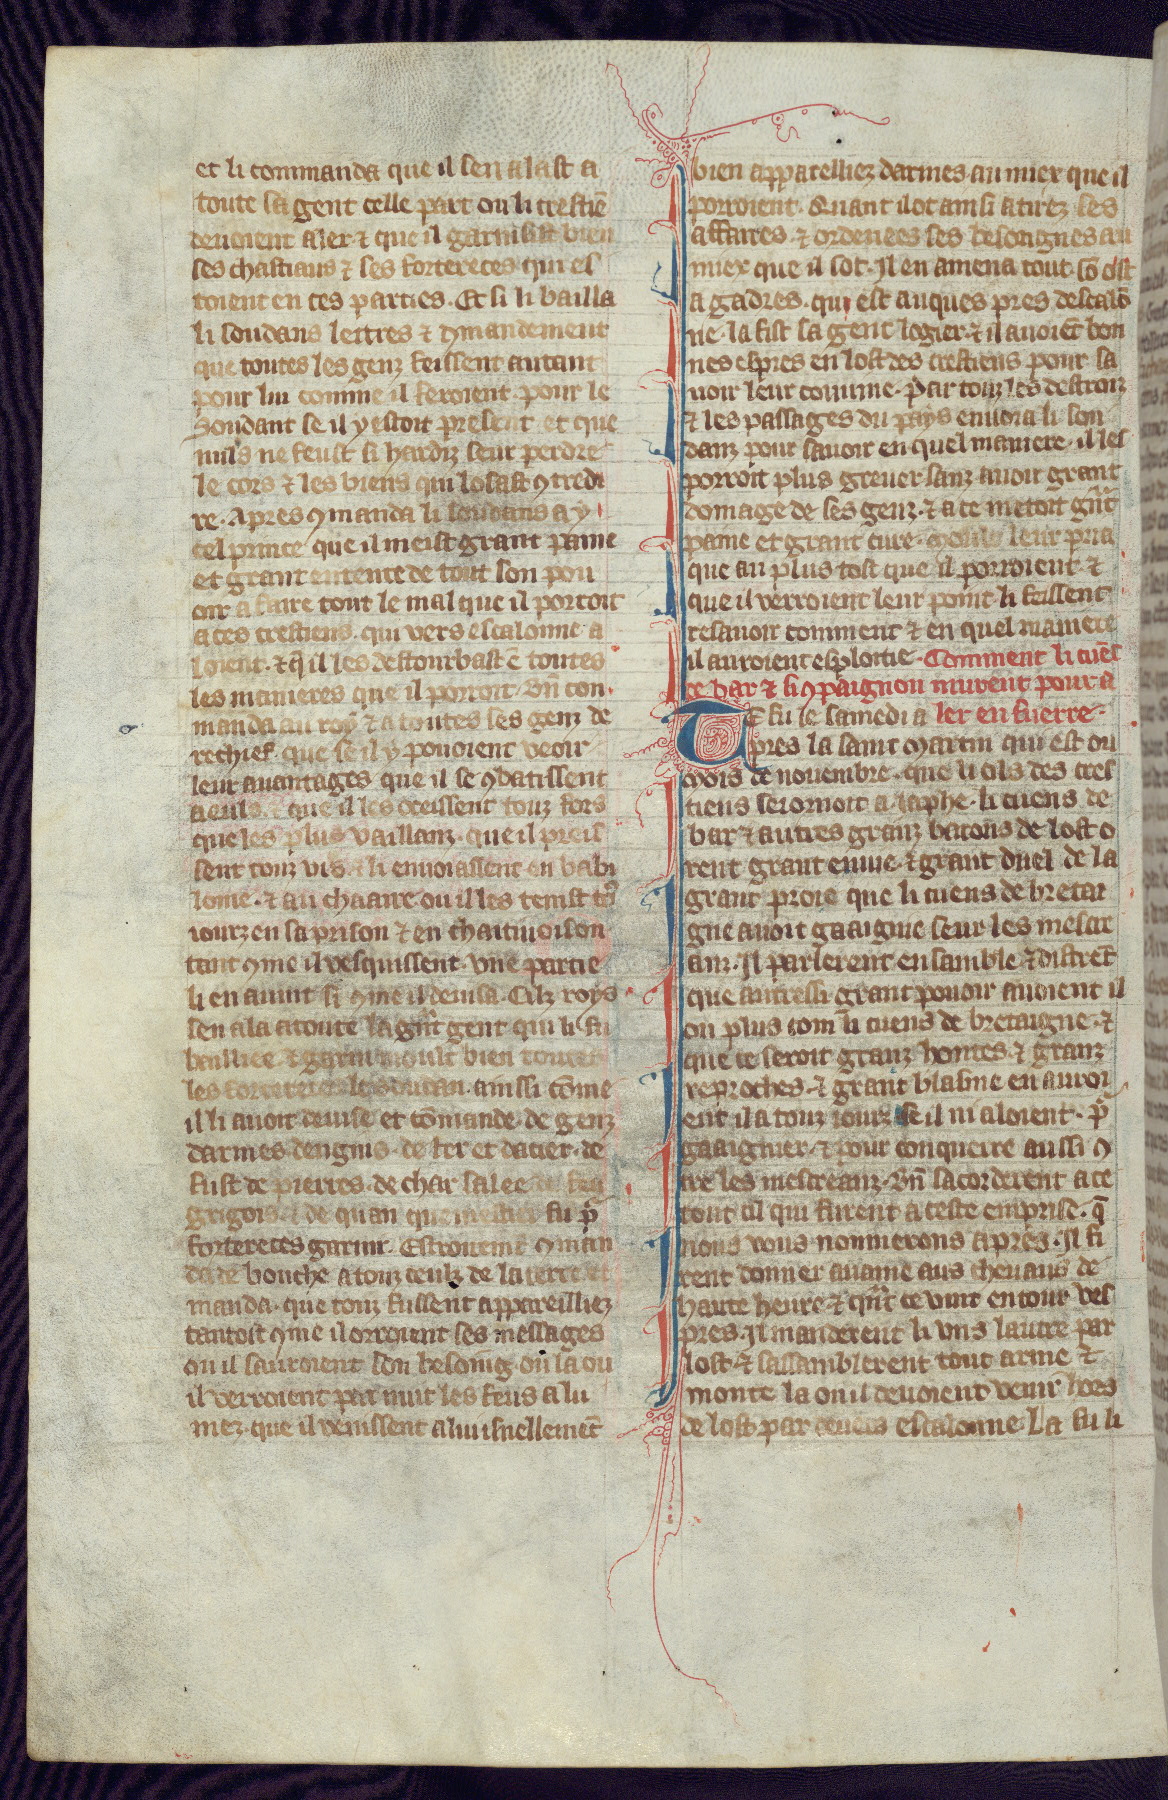 et li commanda que il sen alast a
toute sa gent celle part ou li crestiē
deuoient aler ⁊ que il garnisist bien
ses chastiaus ⁊ ses forteresces qui es
toient en ces parties. Et si li bailla
li soudans lettres ⁊ ꝯmandement
que toutes les genz feissent autant
pour lui comme il feroient pour le
soudant se il y estoit present. et que
nuls ne feust si hardiz seur perdre
le cors ⁊ les biens qui losast ꝯtredi
re. Apres ꝯmanda li soudans a y
cel prince que il meist grant paine
et grant entente de tout son pou
oir a faire tout le mal que il porroit
a ces crestiens. qui vers escalonne a
loient. ⁊ q̄ il les destourbast ē toutes
les manieres que il porroit. Bn̄ con
manda au roy ⁊ a toutes ses genz de
rechief. que se il y pouoient veoir
leur auantages que il se ꝯbatissent
a euls. ⁊ que il les occissent touz fors
que les plus vaillanz. que il preis
sent touz vis. ⁊ li enuoiassent en babi
loine. ⁊ au chaaire ou il les tenist toꝰ
iourz en sa prison ⁊ en chaitiuoison
tant ꝯme il vesquissent. vne partie
li en auint si ꝯme il deuisa. Cilz roys
sen ala a toute la gn̄t gent qui li fu
bailliee. ⁊ garni moult bien toutes
les forteresces le soudan. aussi cōme
il li auoit deuise et cōmande. de genz
darmes dengins. de fer et dacier. de
fust de pierres. de char salee de feu
grigois. ⁊ de quan que mestier fu p̄
forteresces garnir. Estroitemēt ꝯman
da de bouche a touz ceulz de la terre et
manda. que touz fussent appareilliez
tantost ꝯme il orroient ses messages
ou il sauroient son besoing. ou la ou
il verroient par nuit les feus alu
mez. que il venissent a lui isnellemēt
bien appareilliez darmes au miex que il
porroient. Quant il ot ainsi atirez ses
affaires. ⁊ ordenees ses besoignes au
miex que il sot. Il en amena tout sō ost
a gadres. qui est auques pres descalō
ne. la fist sa gent logier. ⁊ il auoiēt bon
nes espies en lost des crestiens pour sa
uoir leur couuine. Par touz les destroiz
⁊ les passages du pays enuoia li sou
danz pour sauoir en quel maniere. il les
porroit plus greuer sanz auoir grant
domage de ses genz. ⁊ a ce metoit gn̄t
paine et grant cure. Moult leur pria
que au plus tost que il porroient ⁊
que il verroient leur point li feissent
resauoir comment ⁊ en quel maniere
il auroient esploitie. Comment li cuēs
de bar ⁊ si ꝯpaignou murent pour a
ler en fuerre.
Ce fu le samedi a
pres la saint Martin qui est ou
mois de nouembre. que li olz des cres
tiens seiornoit a iaphe. li cuens de
bar ⁊ autres granz barons de lost o
rent grant enuie. ⁊ grant duel de la
grant proie que li cuens de bretai
gne auoit gaaignie seur les mescre
anz. Il parlerent ensamble ⁊ distrēt
que autressi grant pouoir auoient il
ou plus com li cuens de bretaigne. ⁊
que ce seroit granz hontes. ⁊ granz
reproches. ⁊ grant blasme en auroi
ent il a touz iourz se il ni aloient. p̄
gaaignier. ⁊ pour conquerre aussi ꝯ
tre les mescreanz. Bn̄ sacorderent a ce
tout cil qui furent a ceste emprise. q̄
nous vous nommerons apres. Il fi
rent donner auaine aus cheuaus de
haute heure. ⁊ qn̄t ce vint entour ves
pres. Il manderent li vns lautre par
lost. ⁊ sassamblerent tout arme ⁊
monte la ou il deuoient venir hors
de lost par deuers escalonne. La fu li